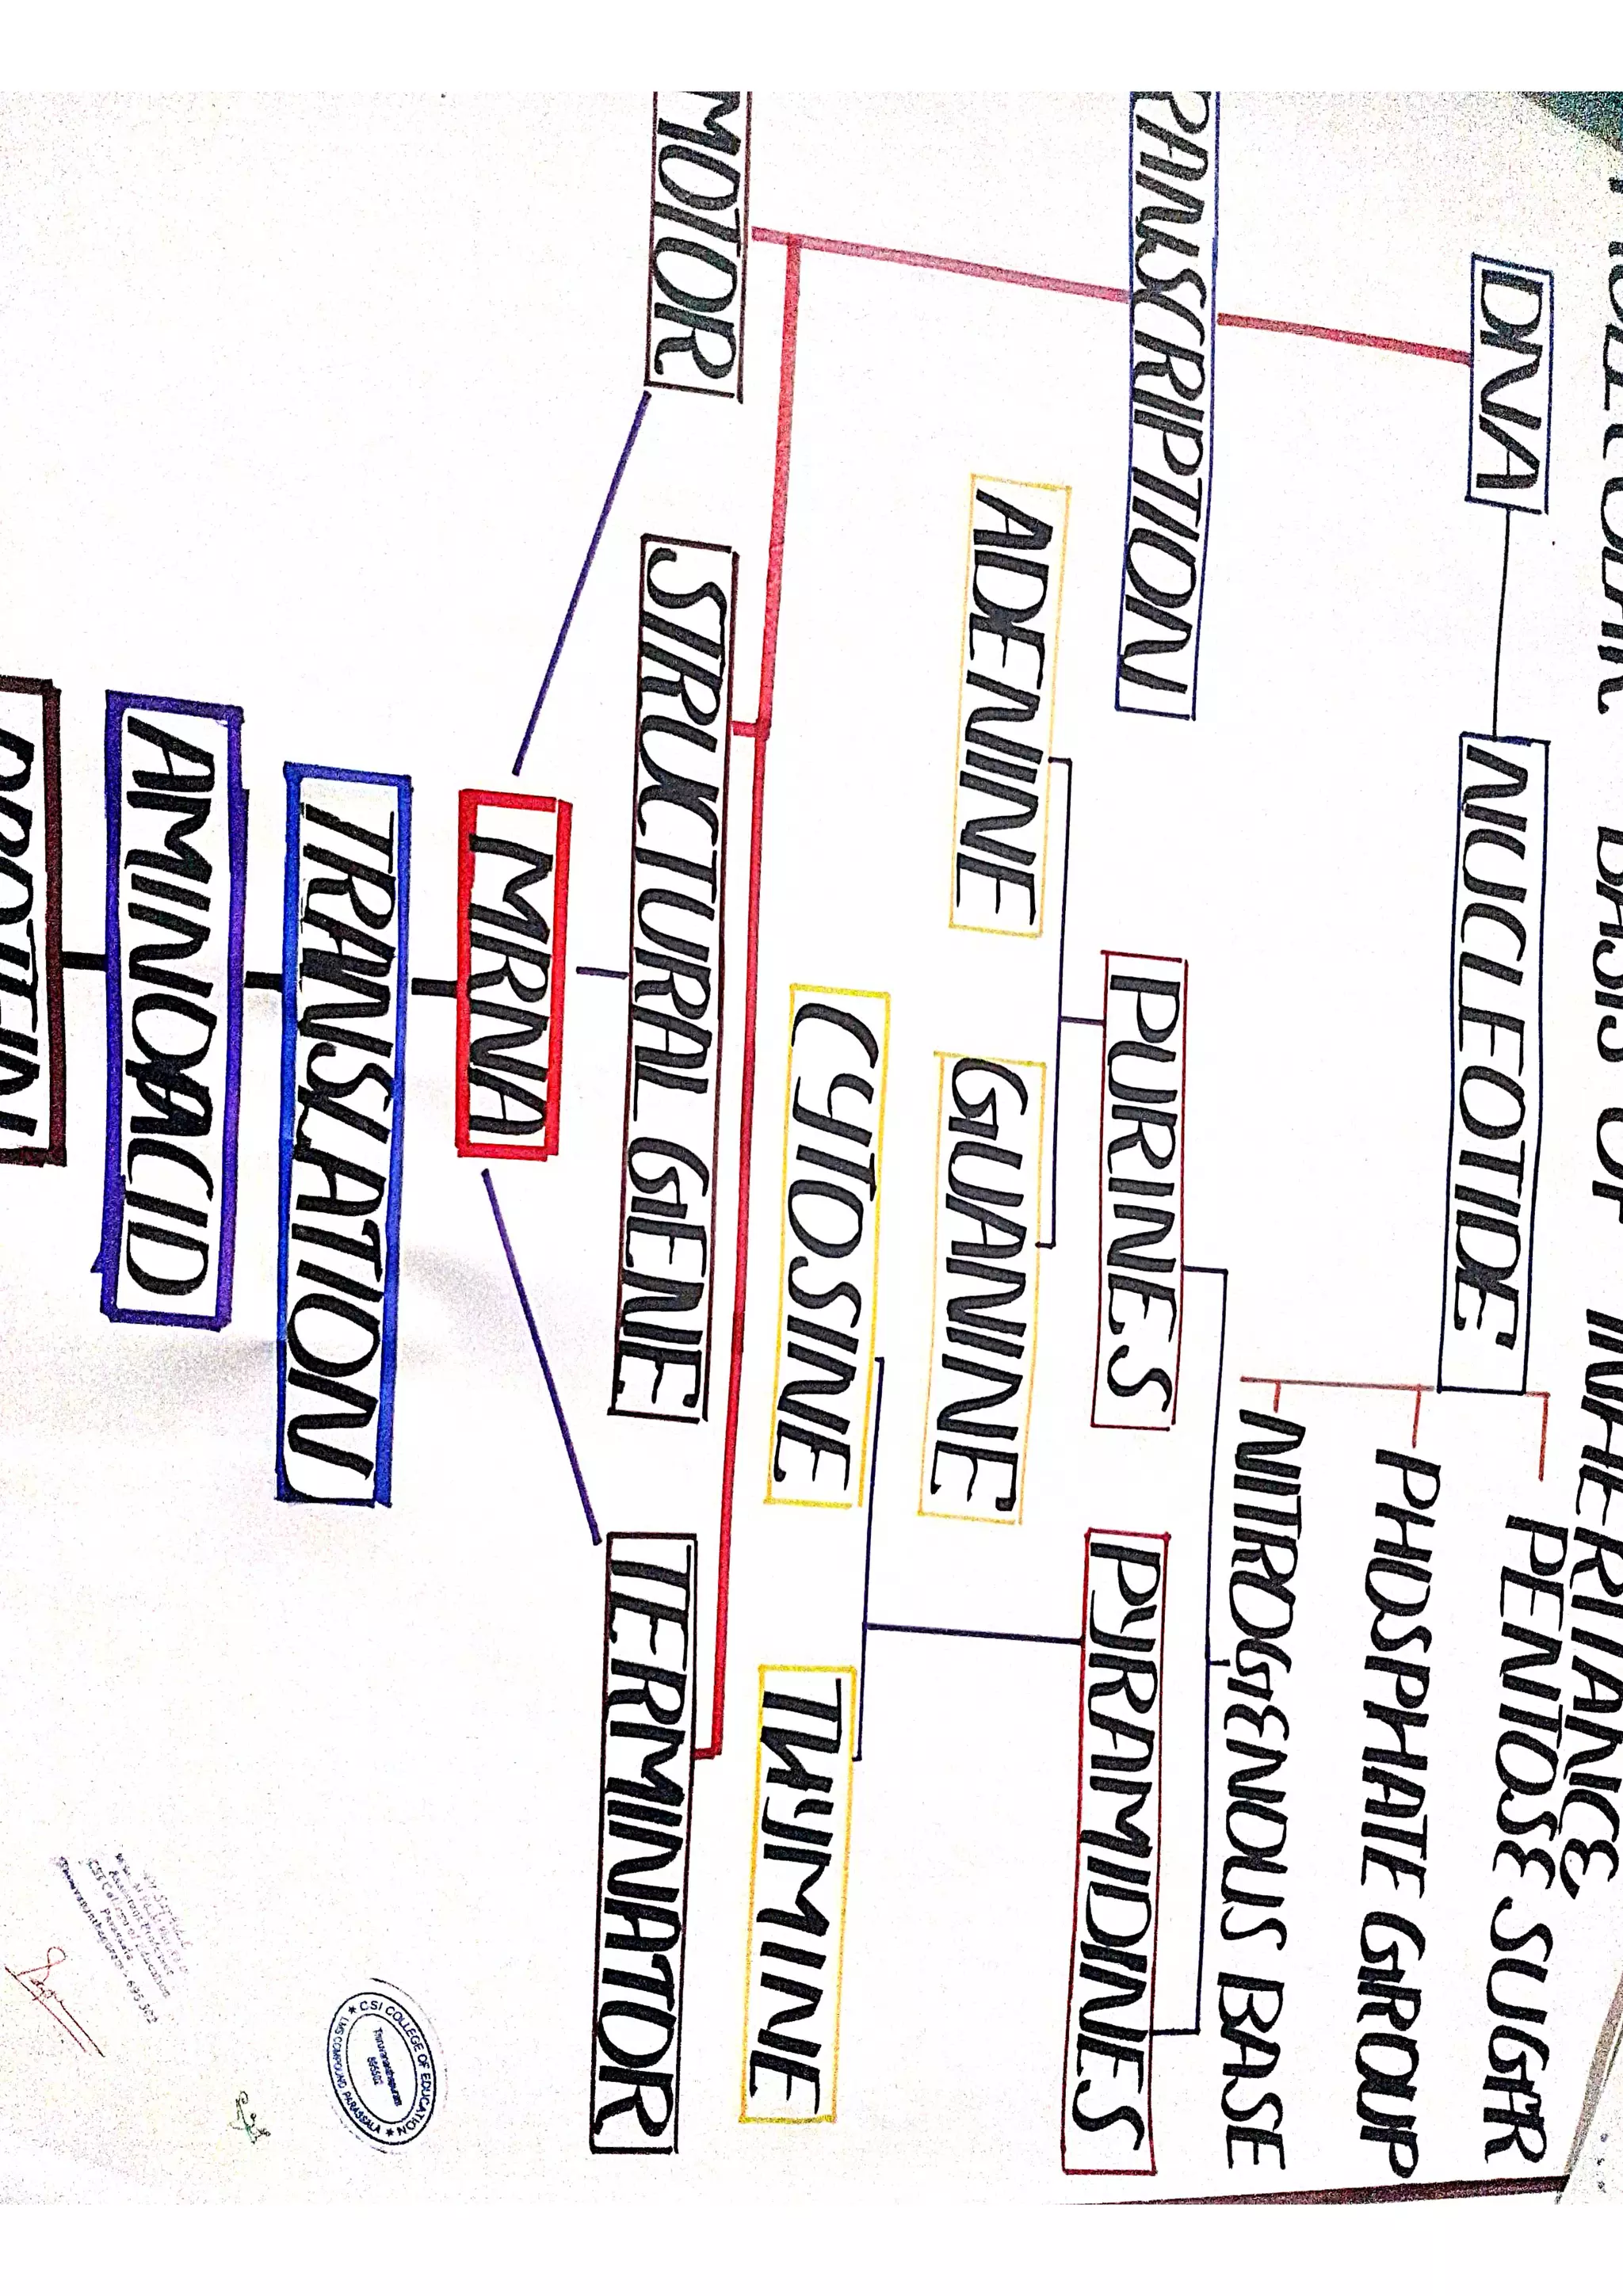 MOLECULAR BASIS OF INHERITANCE
DNA
NUCLEOTIDE
PENTOSE SUGAR
PHOSPHATE GROUP
NITROGENOUS BASE
RANSCRIPTION
PURINES
PYRAMIDINES
ADENINE
GUANINE
CYTOSINE
THYMINE
MOTOR
STRUCTURAL GENE
TERMINATOR
MRNA
TRANSLATION
AMINOACID
PROTEIN
★ CSI COLLEGE OF EDUCATION ★
Thiruvananthapuram
695502
LMS COMPOUND PARASSALA
Assistant Professor
CSI College of Education
Parassala
Thiruvananthapuram - 695 502